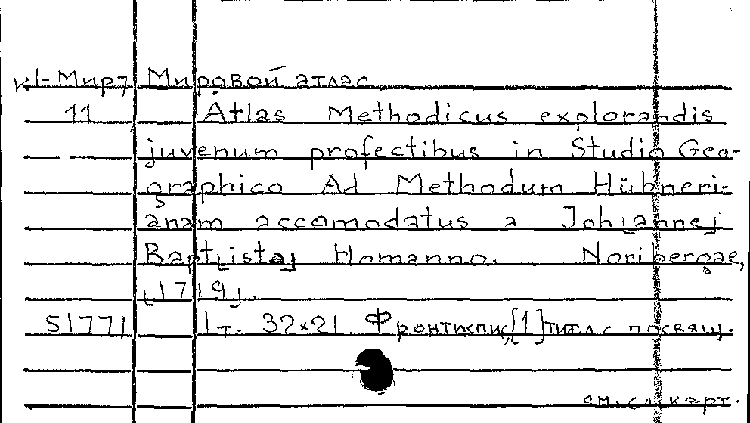 к1-Мир7 Мировой атлас
11 Atlas Methodicus explorandis
juvenum profectibus in Studio Geo-
graphico Ad Methodum Hübneri-
anam accomodatus a Joh[anne]
Bapt[ista] Homanno. Noribergae,
[1719].
51771 1т. 32×21 Фронтиспис, [1] титл с посвящ.
см. сл. карт.